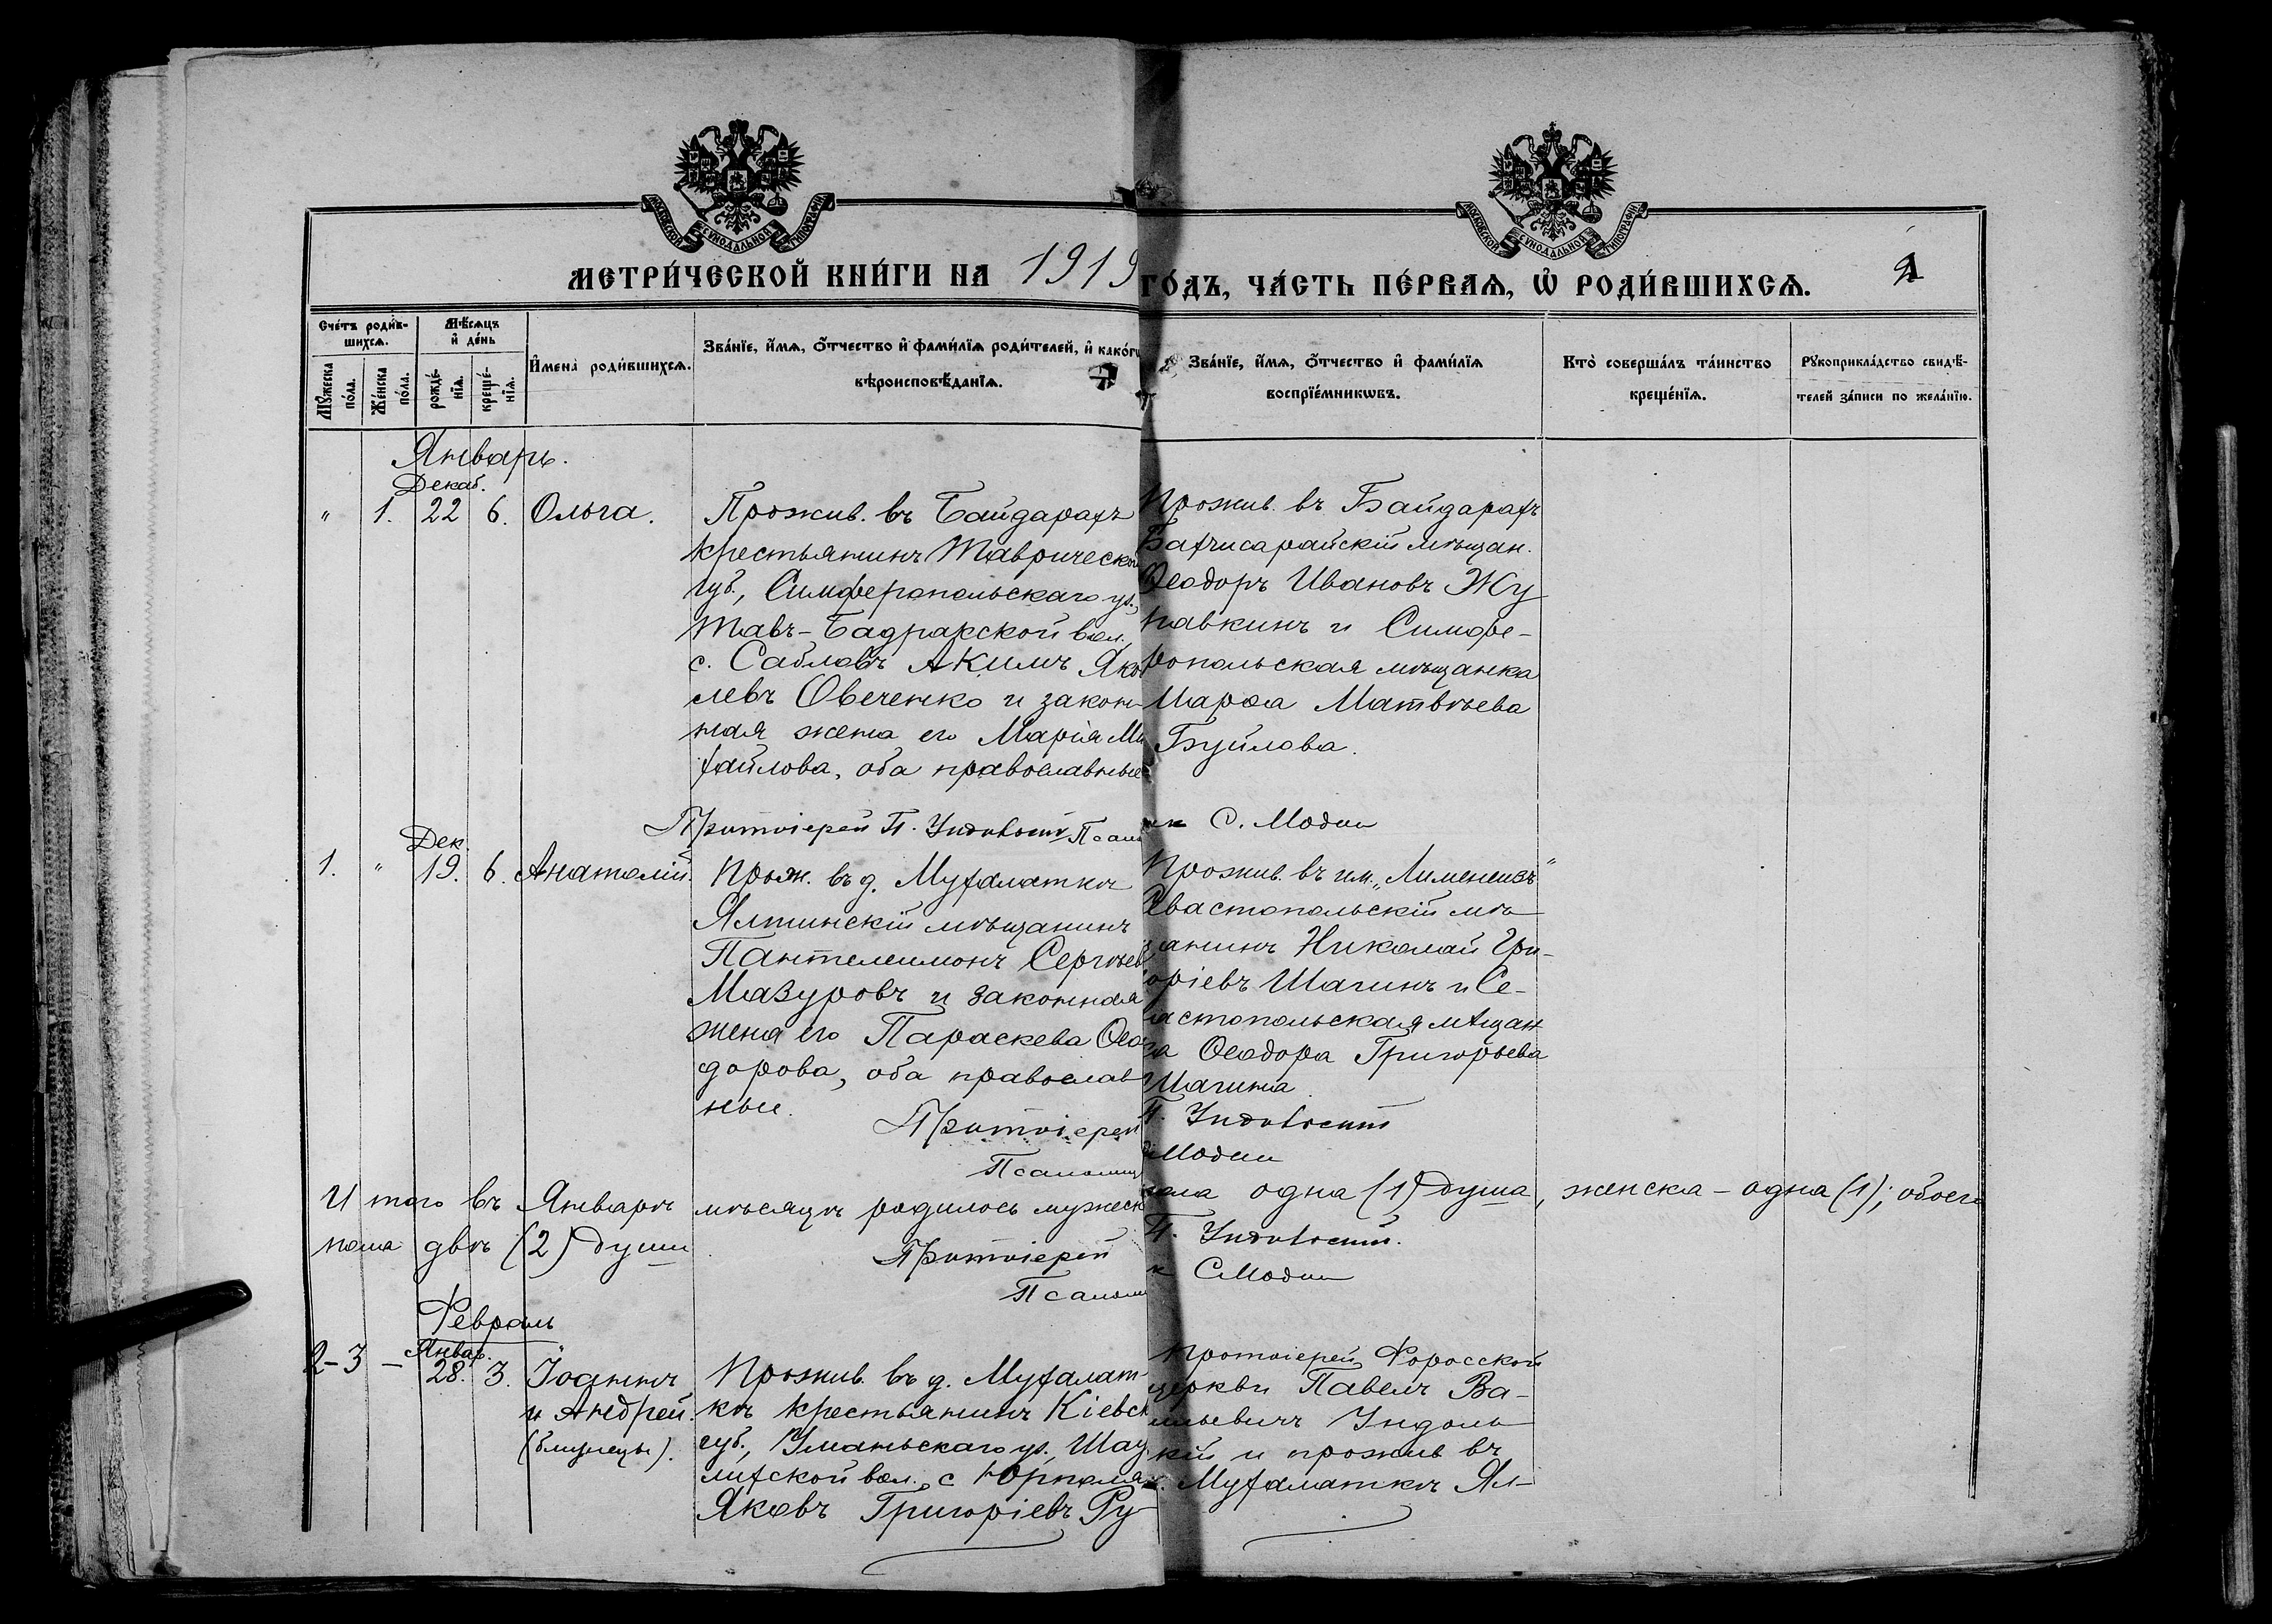 МОСКОВСКОЙ СѴНОДАЛЬНОЙ ТИПОГРАФІИ
МОСКОВСКОЙ СѴНОДАЛЬНОЙ ТИПОГРАФІИ
МЕТРИ́ЧЕСКОЙ КНИ́ГИ НА 1919
ГО́ДЪ, ЧА́СТЬ ПЕ́РВАѦ, Ѽ РОДИ́ВШИХСѦ.
Сче́тъ роди́в-
шихсѧ.
Мꙋ́жеска по́ла.
Же́нска по́ла.
Мѣ́сѧцъ
и҆ де́нь
рожде́-
нїѧ.
креще́-
нїѧ.
И҆мена̀ роди́вшихсѧ.
Зва́нїе, и҆́мѧ, ѻ҆́тчество и҆ фами́лїѧ роди́телей, и҆ како́гѡ
вѣроисповѣ́данїѧ.
Зва́нїе, и҆́мѧ, ѻ҆́тчество и҆ фами́лїѧ
воспрїе́мникѡвъ.
Кто̀ соверша́лъ та́инство
креще́нїѧ.
Рꙋкоприкла́дство свидѣ́-
телей за́писи по жела́нїю.
Январь.
Декаб.
" 1. 22 6. Ольга.
Прожив. въ Байдарахъ
крестьянинъ Таврической
губ., Симферопольскаго у.,
Тавъ-Бадракской вол.,
с. Сабловъ Акимъ Яков
левъ Овченко и закон-
ная жена его Марія Ми
хайлова, оба православные
Прожив. въ Байдарахъ
Бахчисарайскій мѣщан.
Ѳеодоръ Ивановъ Жу
равкинъ и Симфе-
ропольская мѣщанка
Марѳа Матвѣева
Буйлова.
Протоіерей П. Ундольскій Псалом
ик С. Модин
Дек.
1. " 19. 6. Анатолій.
Прож. въ д. Мухалаткѣ
Ялтинскій мѣщанинъ
Пантелеимонъ Сергѣев
Мазуровъ и законная
жена его Параскева Ѳео
дорова, оба православ
ные.
Прожив. въ им. „Лименеизъ"
Севастопольскій мѣ
щанинъ Николай Гри-
горіевъ Шагинъ и Се-
вастопольская мѣщан
ка Ѳеодора Григорьева
Шагина
Протоіерей П. Ундольскій
Псаломщ Модин
Итого въ Январѣ мѣсяцѣ родилось мужеск пола одна (1) душа, женска – одна (1); обоего
пола двѣ (2) души
Протоіерей П. Ундольскій.
Псалом к С Модин
Февраль
Январ.
2-3 – 28. 3. Іоаннъ
и Андрей.
(близнецы).
Прожив. въ д. Мухалат
кѣ крестьянинъ Кіевск
губ., Уманьскаго у.,
вол., с
Яковъ Григоріевъ Ру
Протоіерей Форосской
церкви Павелъ Ва-
сильевичъ Ундоль
скій и прожив въ
д. Мухалаткѣ Ял-